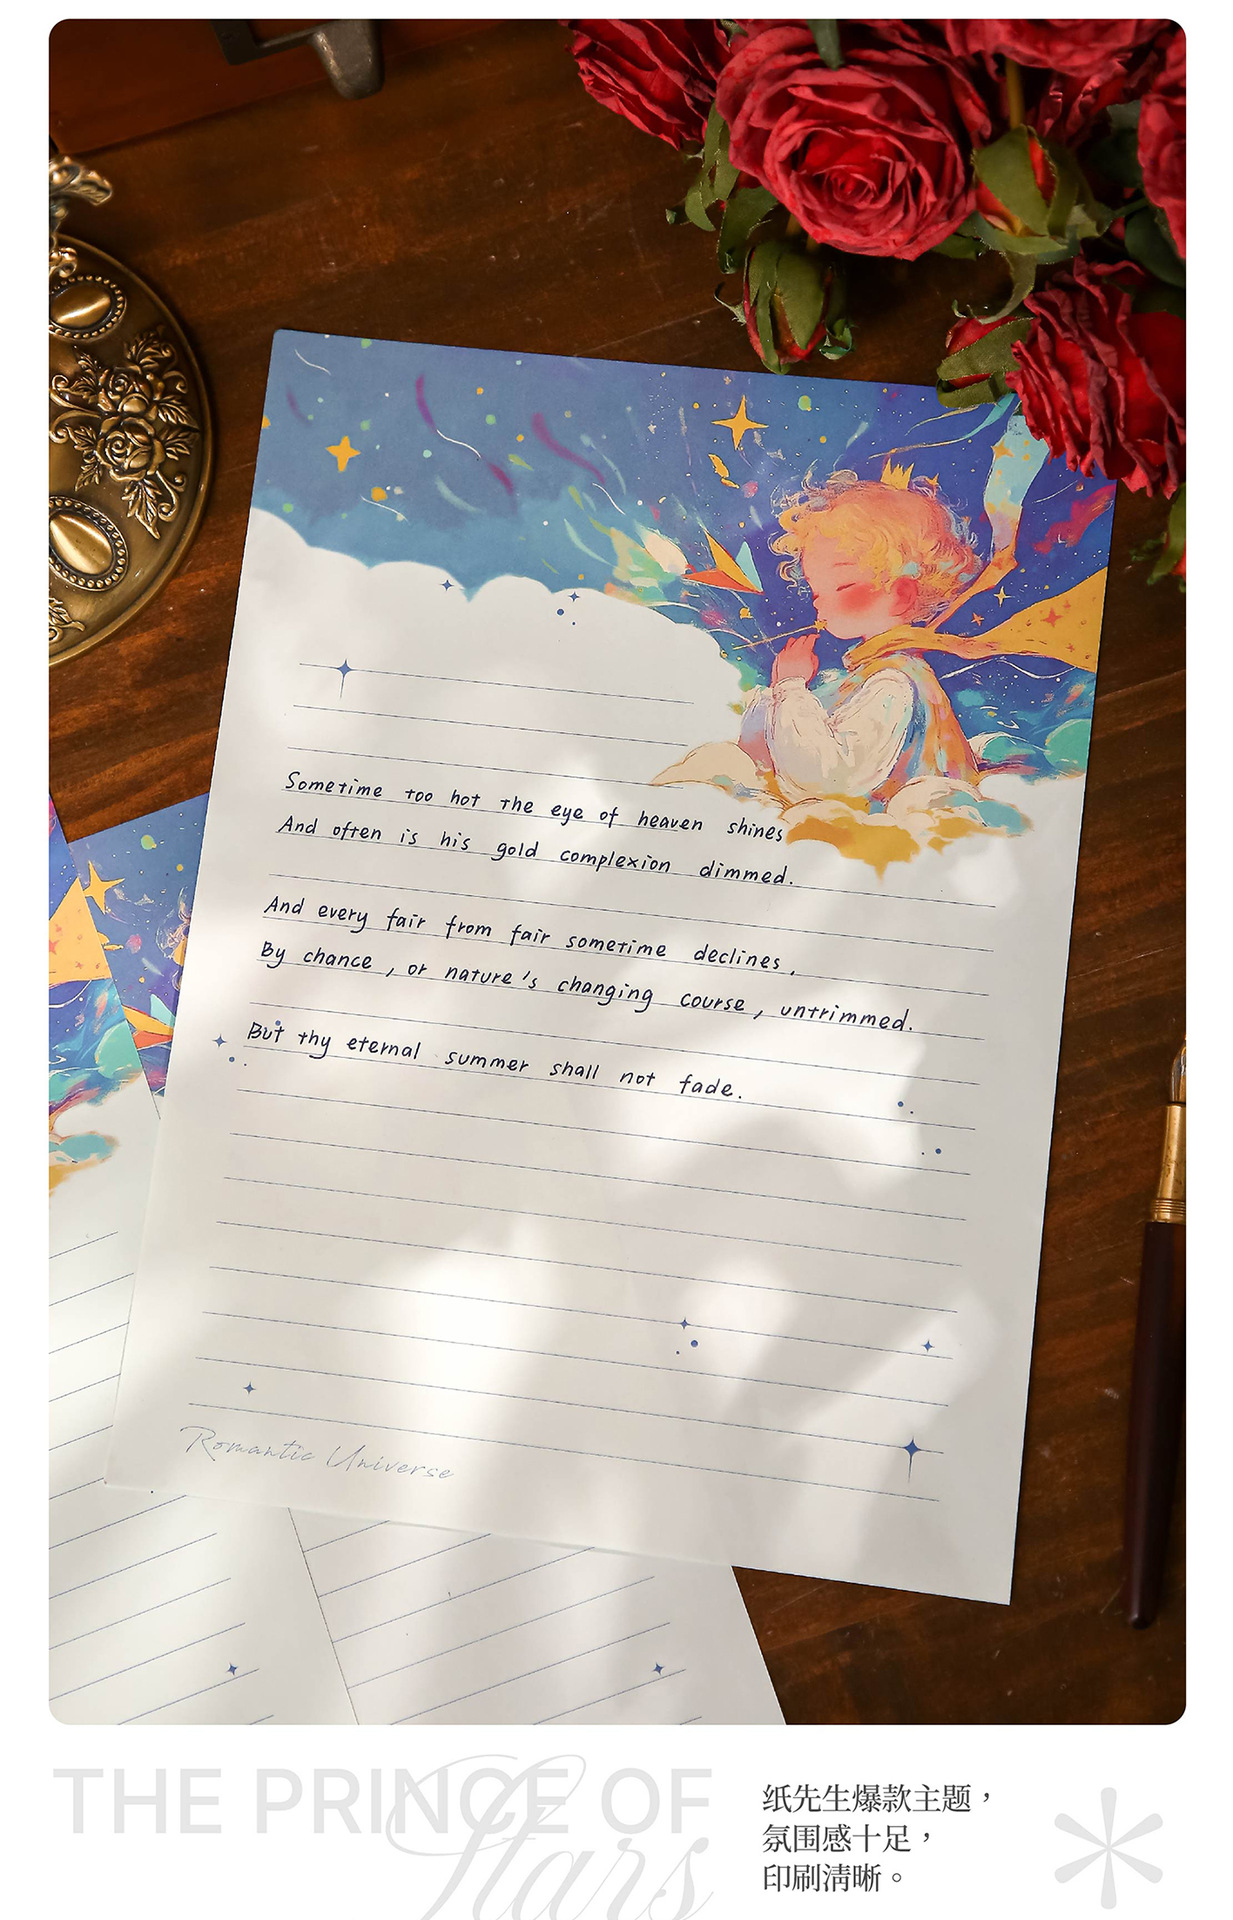 Sometime too hot the eye of heaven shines
And often is his gold complexion dimmed.
And every fair from fair sometime declines,
By chance, or nature's changing course, untrimmed.
But thy eternal summer shall not fade.
Romantic Universe
THE PRINCE OF
Stars
纸先生爆款主题，
氛围感十足，
印刷清晰。